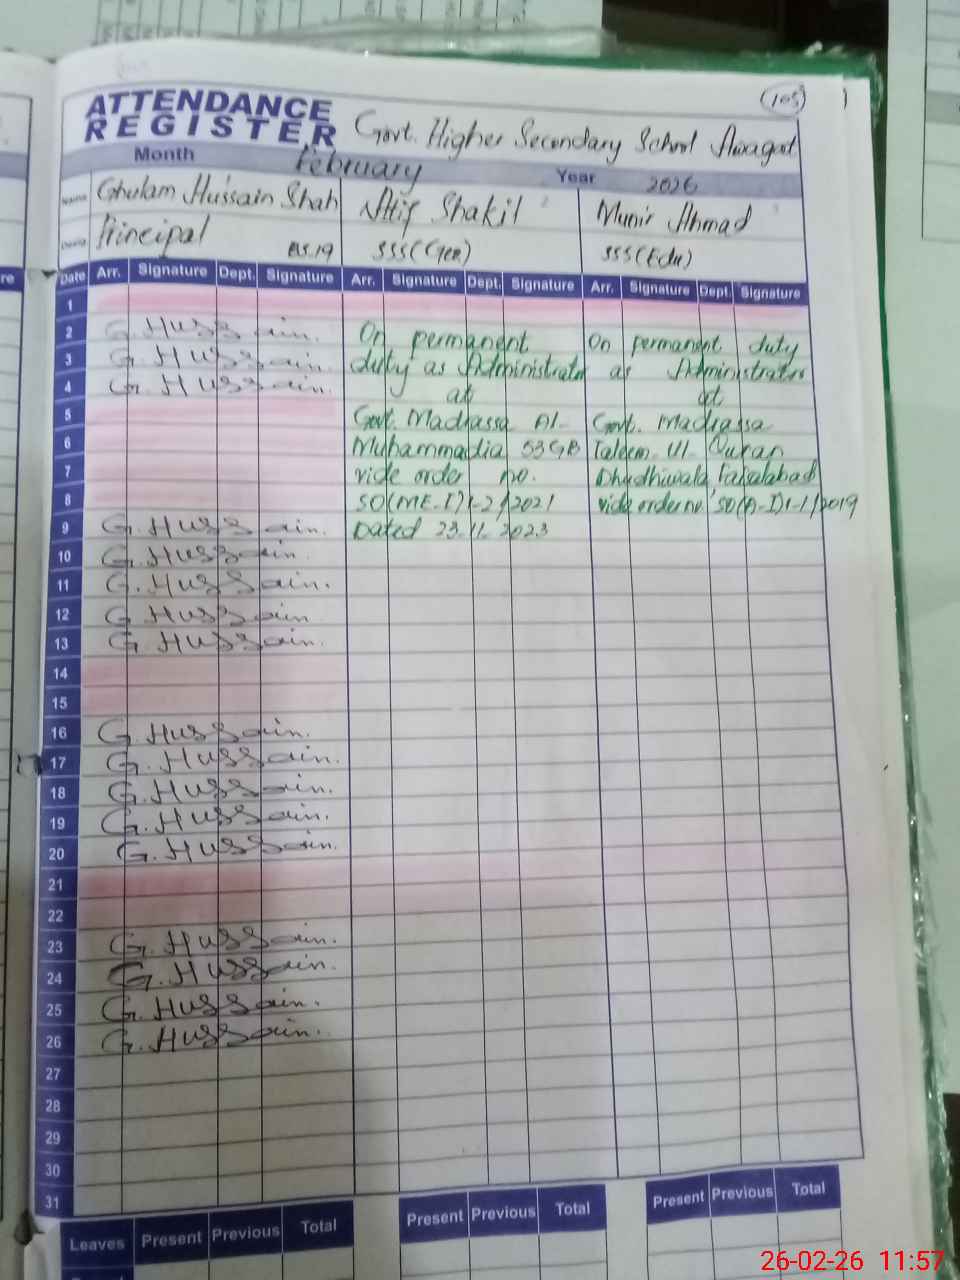 (105)
ATTENDANCE
REGISTER
Govt. Higher Secondary School Awagat
Month February Year 2026
Name Ghulam Hussain Shah Atif Shakil Munir Ahmad
Desig. Principal BS.19 SSS(Gen) SSS(Edu)
Date Arr. Signature Dept. Signature Arr. Signature Dept. Signature Arr. Signature Dept. Signature
1
2 G. Hussain. On permanent On permanent duty
3 G. Hussain. duty as Administrator as Administrator
4 G. Hussain. at at
5 Govt. Madrassa Al- Govt. Madrassa
6 Muhammadia 53GB Taleem Ul Quran
7 vide order no. Dhudhiwala Faisalabad
8 SO(ME-I)1-2/2021 vide order no SO(A-I)1-1/2019
9 G. Hussain. Dated 23-11-2023
10 G. Hussain.
11 G. Hussain.
12 G. Hussain
13 G. Hussain.
14
15
16 G. Hussain.
17 G. Hussain.
18 G. Hussain.
19 G. Hussain.
20 G. Hussain.
21
22
23 G. Hussain.
24 G. Hussain.
25 G. Hussain.
26 G. Hussain.
27
28
29
30
31
Leaves Present Previous Total Present Previous Total Present Previous Total
26-02-26 11:57